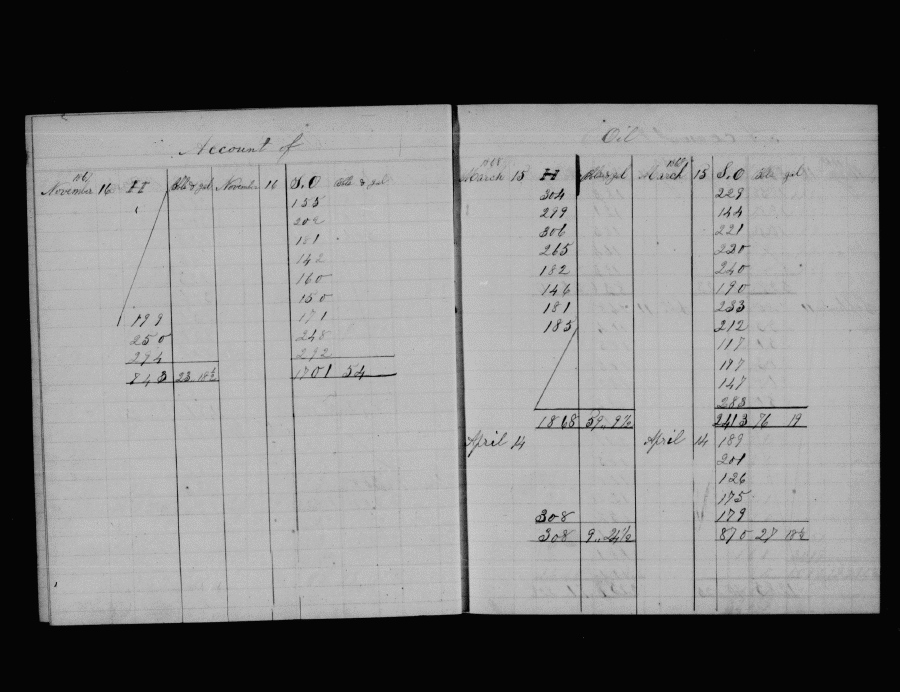 Account of
November 16 H Bbls & gal November 16 S.O Bbls & gal
155
202
121
142
160
150
199 171
250 248
294 292
743 23 18½ 1701 54
Oil
1868
March 15 H March 15 S.O Bbls gal
304 229
299 144
306 221
265 230
182 240
146 190
181 233
185 212
117
197
147
283
1868 59 9½ 2413 76 19
April 14 April 14 189
201
126
175
308 179
308 9 24½ 870 27 18½